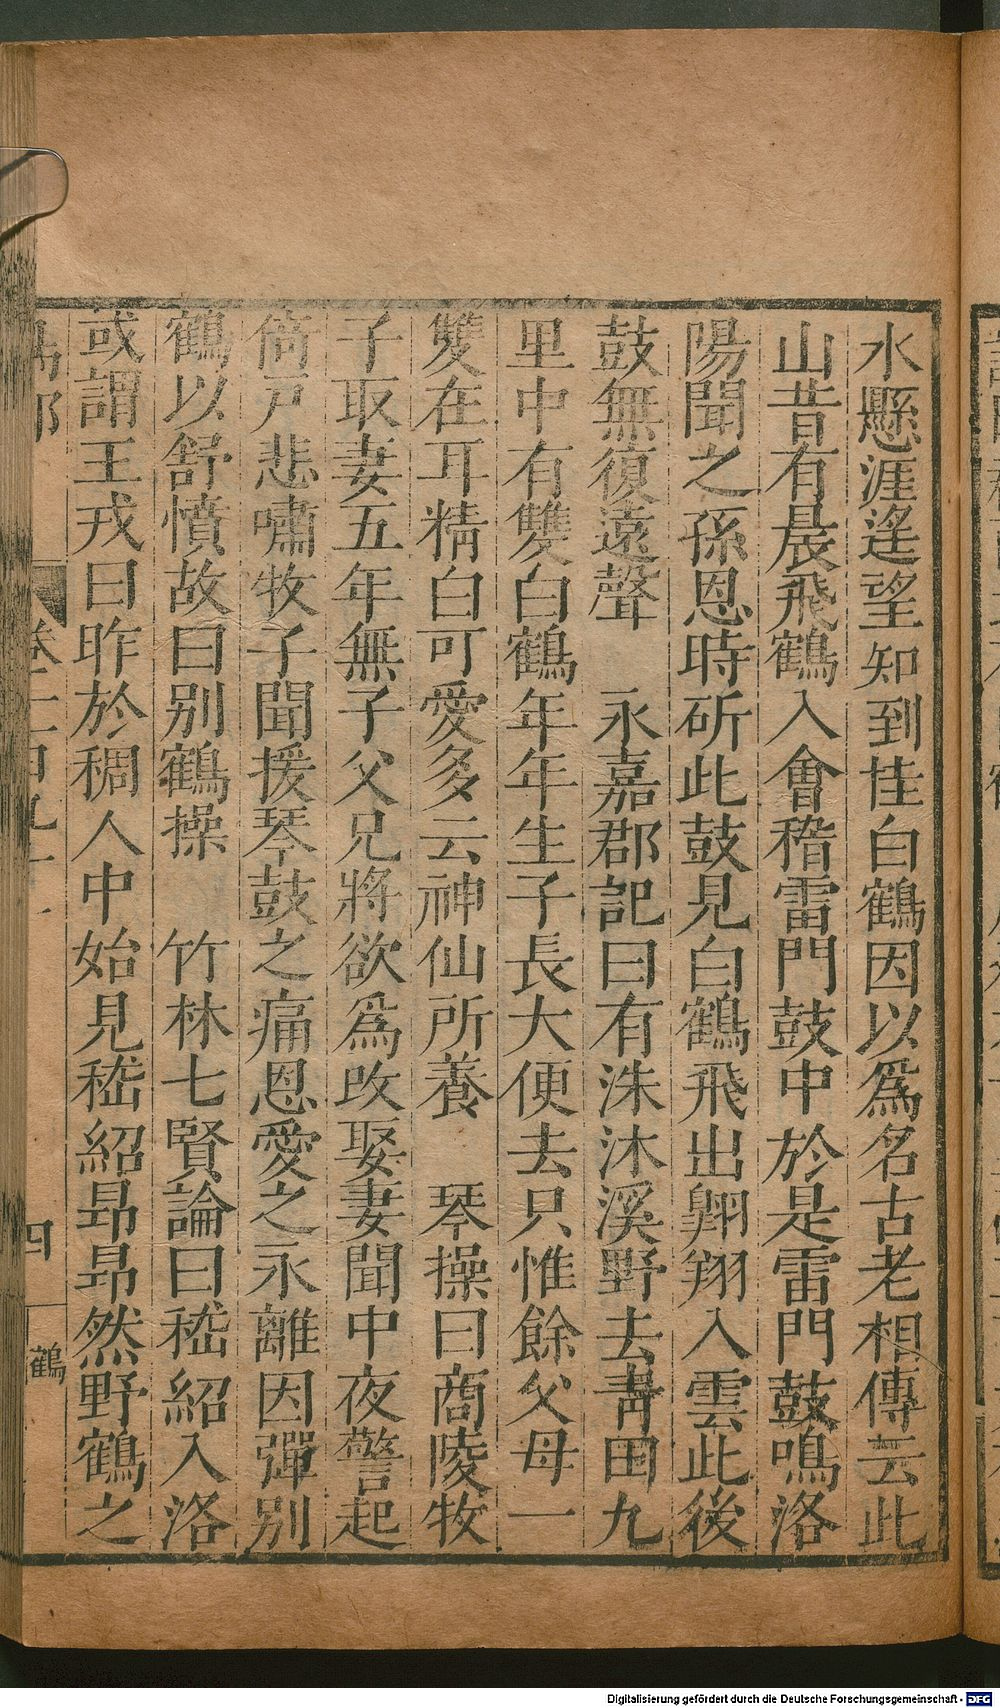 水懸涯遙望知到佳白鶴因以爲名古老相傳云此
山昔有晨飛鶴入會稽雷門鼓中於是雷門鼓鳴洛
陽聞之孫恩時斫此鼓見白鶴飛出翱翔入雲此後
鼓無復遠聲 永嘉郡記曰有洙沐溪野去青田九
里中有雙白鶴年年生子長大便去只惟餘父母一
雙在耳精白可愛多云神仙所養 琴操曰商陵牧
子取妻五年無子父兄將欲爲改娶妻聞中夜警起
倚戸悲嘯牧子聞援琴鼓之痛恩愛之永離因彈別
鶴以舒憤故曰別鶴操 竹林七賢論曰嵇紹入洛
或謂王戎曰昨於稠人中始見嵇紹昻昻然野鶴之
四 鶴
Digitalisierung gefördert durch die Deutsche Forschungsgemeinschaft - DFG